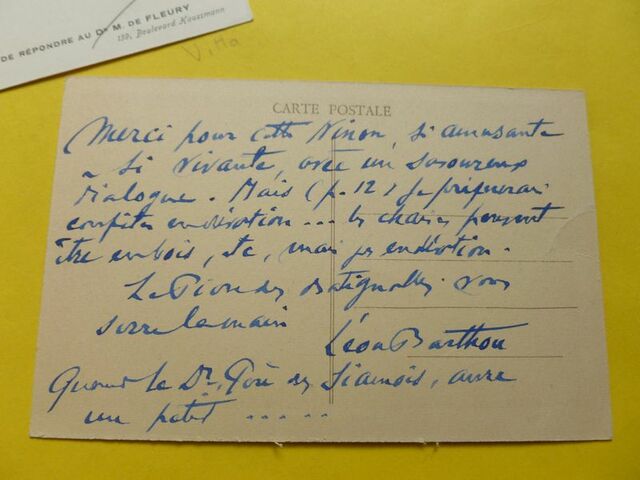 DE RÉPONDRE AU Dr M. DE FLEURY
139, Boulevard Haussmann
CARTE POSTALE
Merci pour cette Ninon, si amusante
si vivante, avec un savoureux
dialogue. Mais (p. 12) je
confites en dévotion ... les chaises peuvent
être en bois, etc, mais pas en dévotion.
Le des Batignolles vous
serre la main
Léon Barthou
Quand le Dr, des Siamois, aura
un petit .....